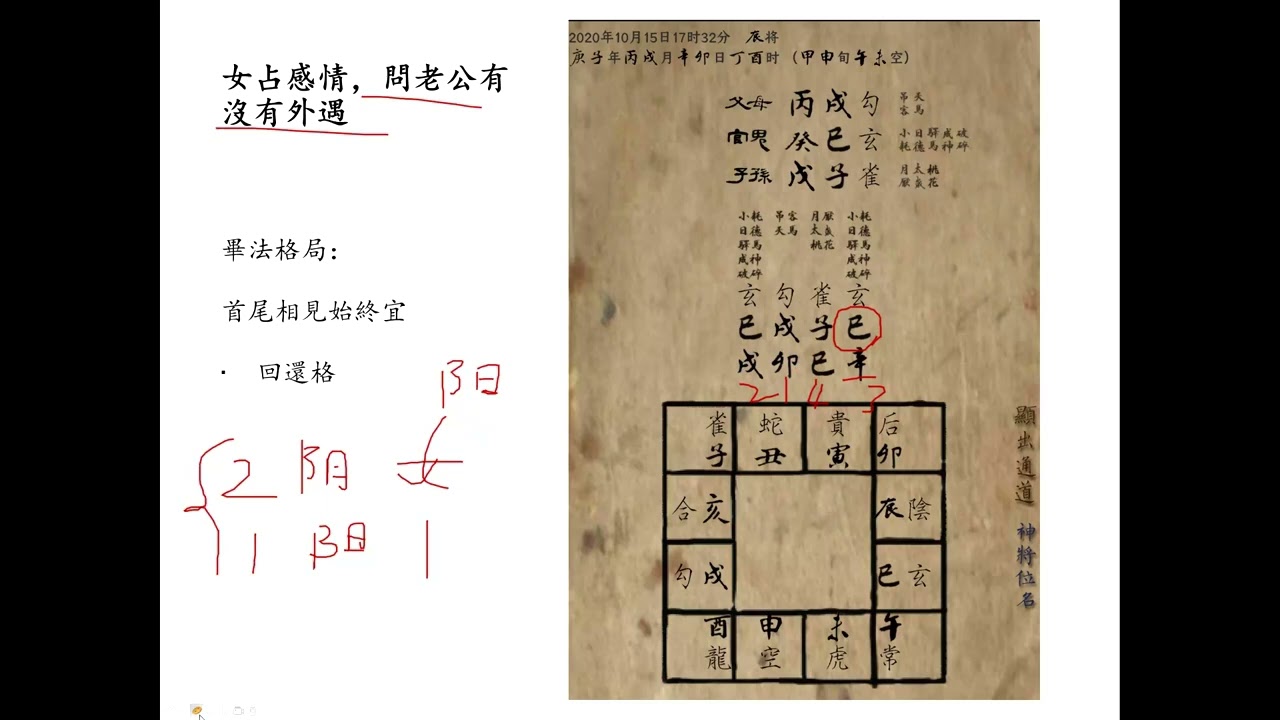 女占感情，問老公有
沒有外遇
畢法格局：
首尾相見始終宜
· 回還格
阝日
2 阝月 女
1 阝日 1
2020年10月15日17时32分 辰将
庚子年丙戌月辛卯日丁酉时（甲申旬午未空）
父母 丙戌勾 吊客 天馬
官鬼 癸巳玄 小耗 日德 驛馬 成神 破碎
子孫 戊子雀 月厭 太歲 桃花
小耗 吊客 月厭 小耗
日德 天馬 太歲 日德
驛馬 桃花 驛馬
成神 成神
破碎 破碎
玄 勾 雀 玄
巳 戌 子 巳
戌 卯 巳 辛
2 1 4 3
雀 蛇 貴 后
子 丑 寅 卯
合 亥 辰 陰
勾 戌 巳 玄
酉 申 未 午
龍 空 虎 常
顯出通道 神將位名